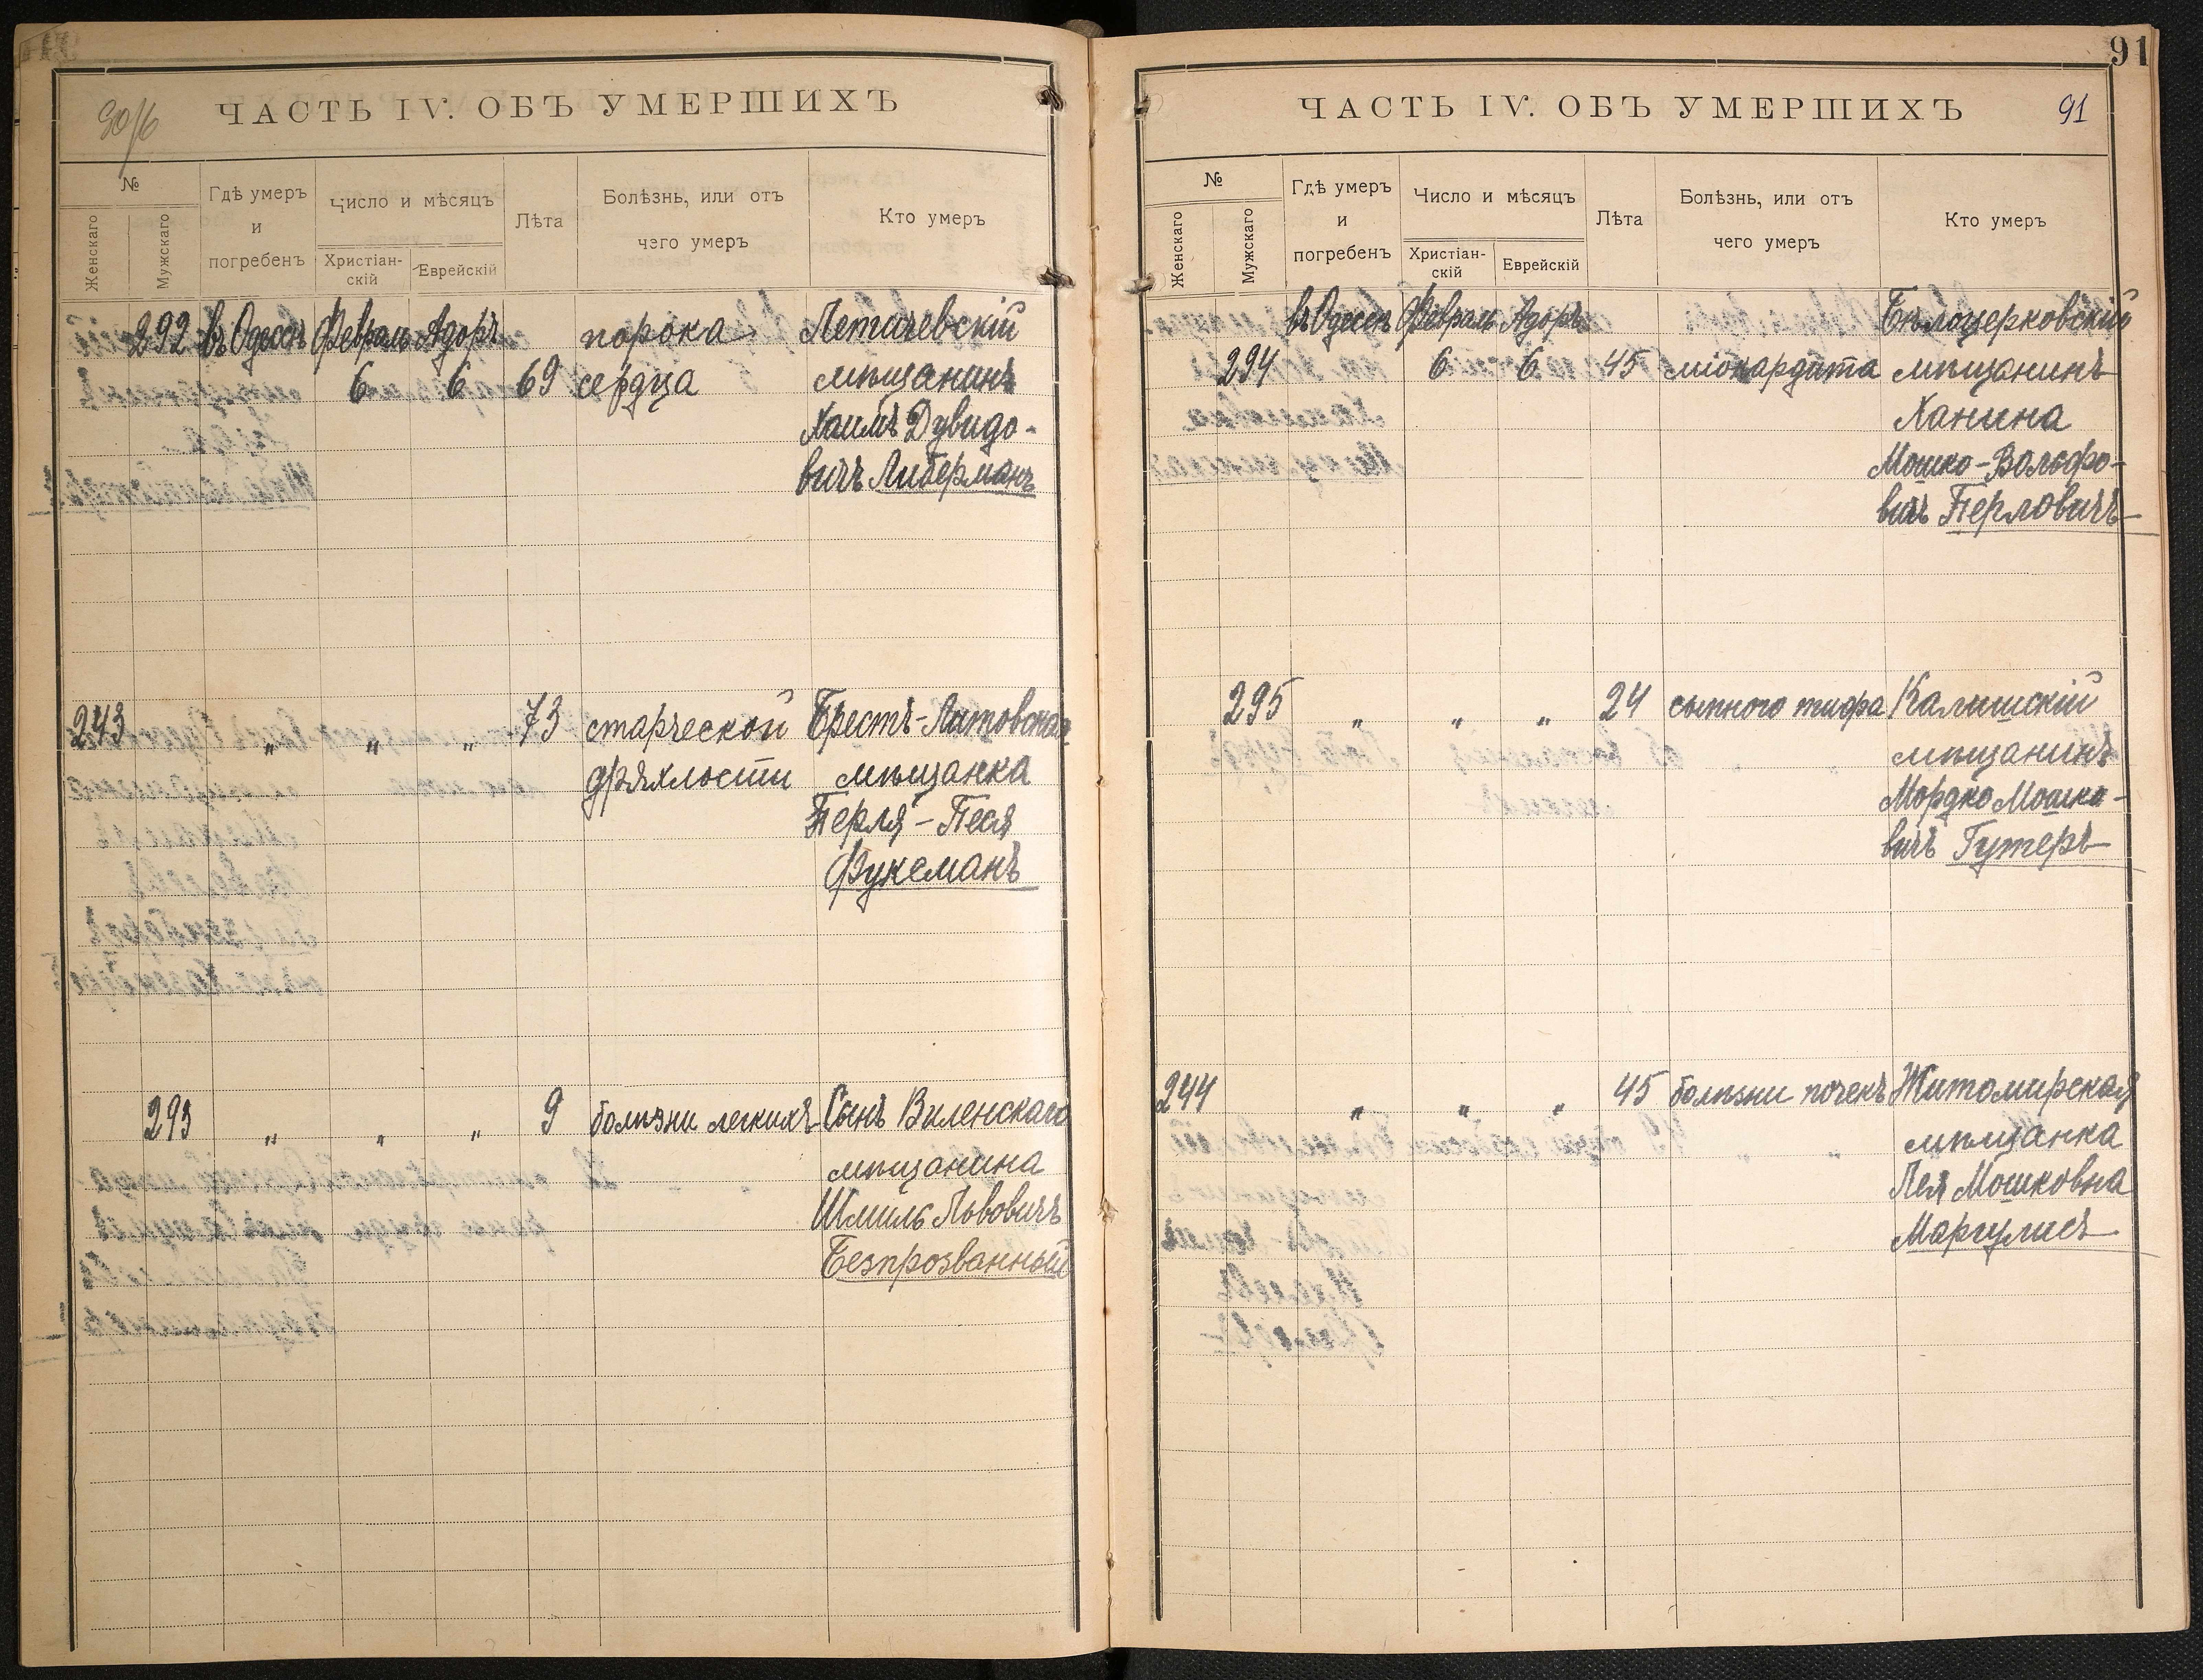 ЧАСТЬ IV. ОБЪ УМЕРШИХЪ
№
Женскаго
Мужскаго
Гдѣ умеръ
и
погребенъ
Число и мѣсяцъ
Христіан-
скій
Еврейскій
Лѣта
Болѣзнь, или отъ
чего умеръ
Кто умеръ
292 въ Одессѣ Февраль Адоръ порока Летичевскій
6 6 69 сердца мѣщанинъ
Хаимъ Дувидо-
вичъ Либерманъ
243 „ „ „ 73 старческой Брестъ-Литовская
дряхлости мѣщанка
Перля-Песя
Фуксманъ
293 „ „ „ 9 болѣзни легкихъ Сынъ Виленскаго
мѣщанина
Шмиль Львовичъ
Безпрозванный
91
ЧАСТЬ IV. ОБЪ УМЕРШИХЪ 91
№
Женскаго
Мужскаго
Гдѣ умеръ
и
погребенъ
Число и мѣсяцъ
Христіан-
скій
Еврейскій
Лѣта
Болѣзнь, или отъ
чего умеръ
Кто умеръ
въ Одессѣ Февраль Адоръ Бѣлоцерковскій
294 6 6 45 міокардита мѣщанинъ
Ханина
Мошко-Вольфо-
вичъ Перловичъ
295 „ „ „ 24 сыпного тифа Калишскій
мѣщанинъ
Мордко Мошко-
вичъ Гутеръ
244 „ „ „ 45 болѣзни почекъ Житомирская
мѣщанка
Лея Мошковна
Маргулисъ